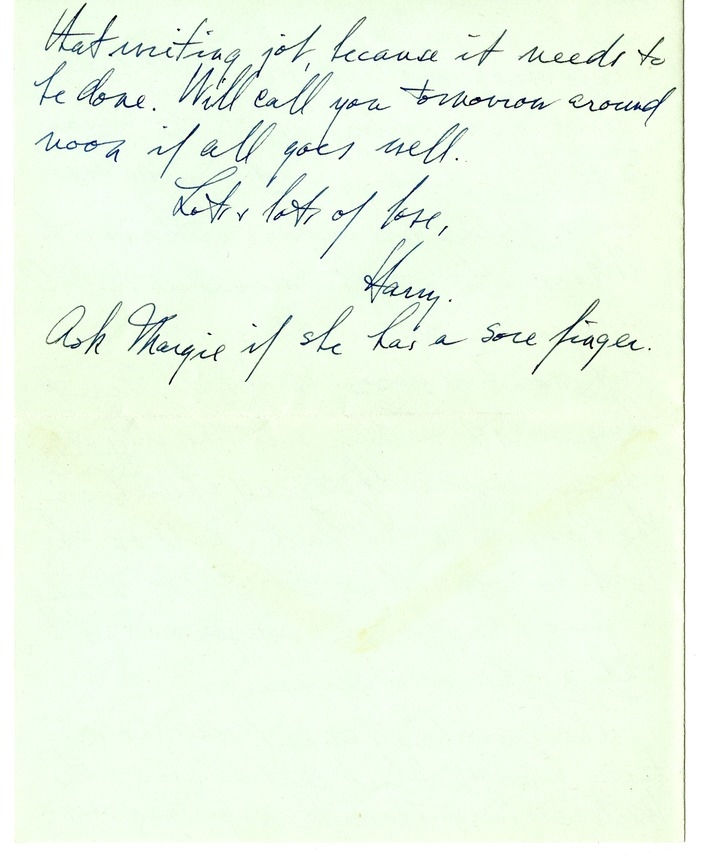 that writing job, because it needs to
be done. Will call you tomorrow around
noon if all goes well.
Lots & lots of love,
Harry.
Ask Margie if she has a sore finger.